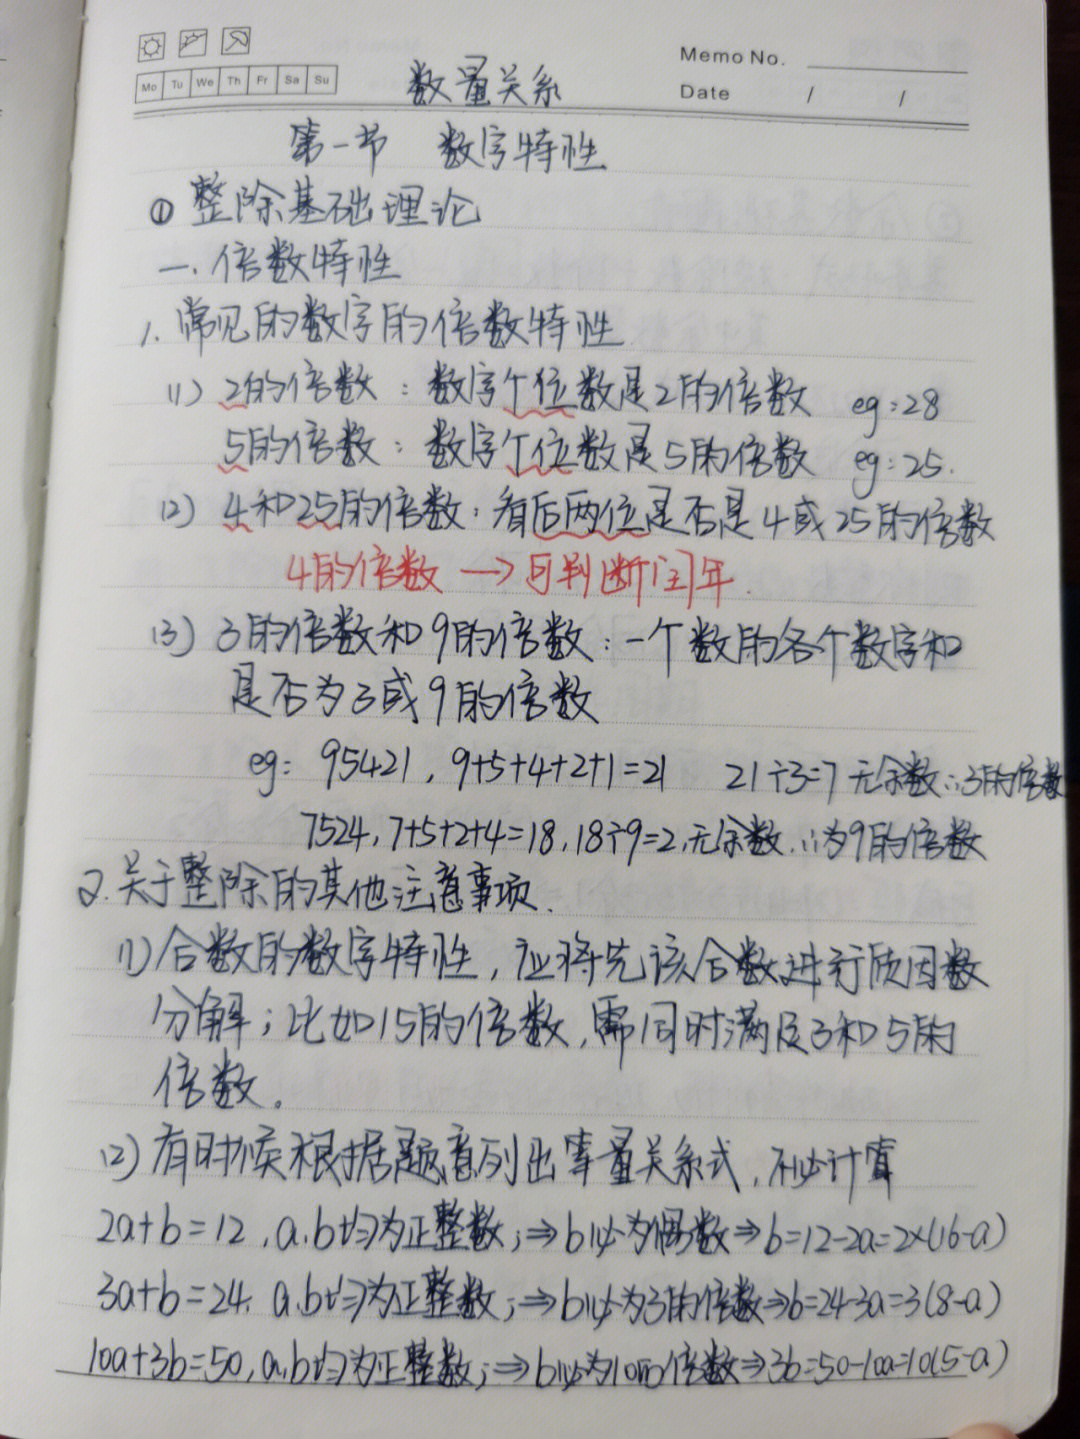 Memo No.
Mo Tu We Th Fr Sa Su
Date / /
数量关系
第一节 数字特性
① 整除基础理论
一.倍数特性
1.常见的数字的倍数特性
(1) 2的倍数:数字个位数是2的倍数 eg:28
5的倍数:数字个位数是5的倍数 eg:25.
(2) 4和25的倍数:看后两位是否是4或25的倍数
4的倍数 → 可判断闰年.
(3) 3的倍数和9的倍数:一个数的各个数字和
是否为3或9的倍数
eg: 95421, 9+5+4+2+1=21 21÷3=7 无余数∴3的倍数
7524,7+5+2+4=18,18÷9=2,无余数.∴为9的倍数
2.关于整除的其他注意事项.
(1)合数的数字特性,应将先该合数进行质因数
分解;比如15的倍数,需同时满足3和5的
倍数。
(2)有时候根据题意列出等量关系式,不必计算
2a+b=12,a,b均为正整数;⇒b必为偶数⇒b=12-2a=2×(6-a)
3a+b=24,a,b均为正整数;⇒b必为3的倍数⇒b=24-3a=3(8-a)
10a+3b=50,a,b均为正整数;⇒b必为10的倍数⇒3b=50-10a=10(5-a)